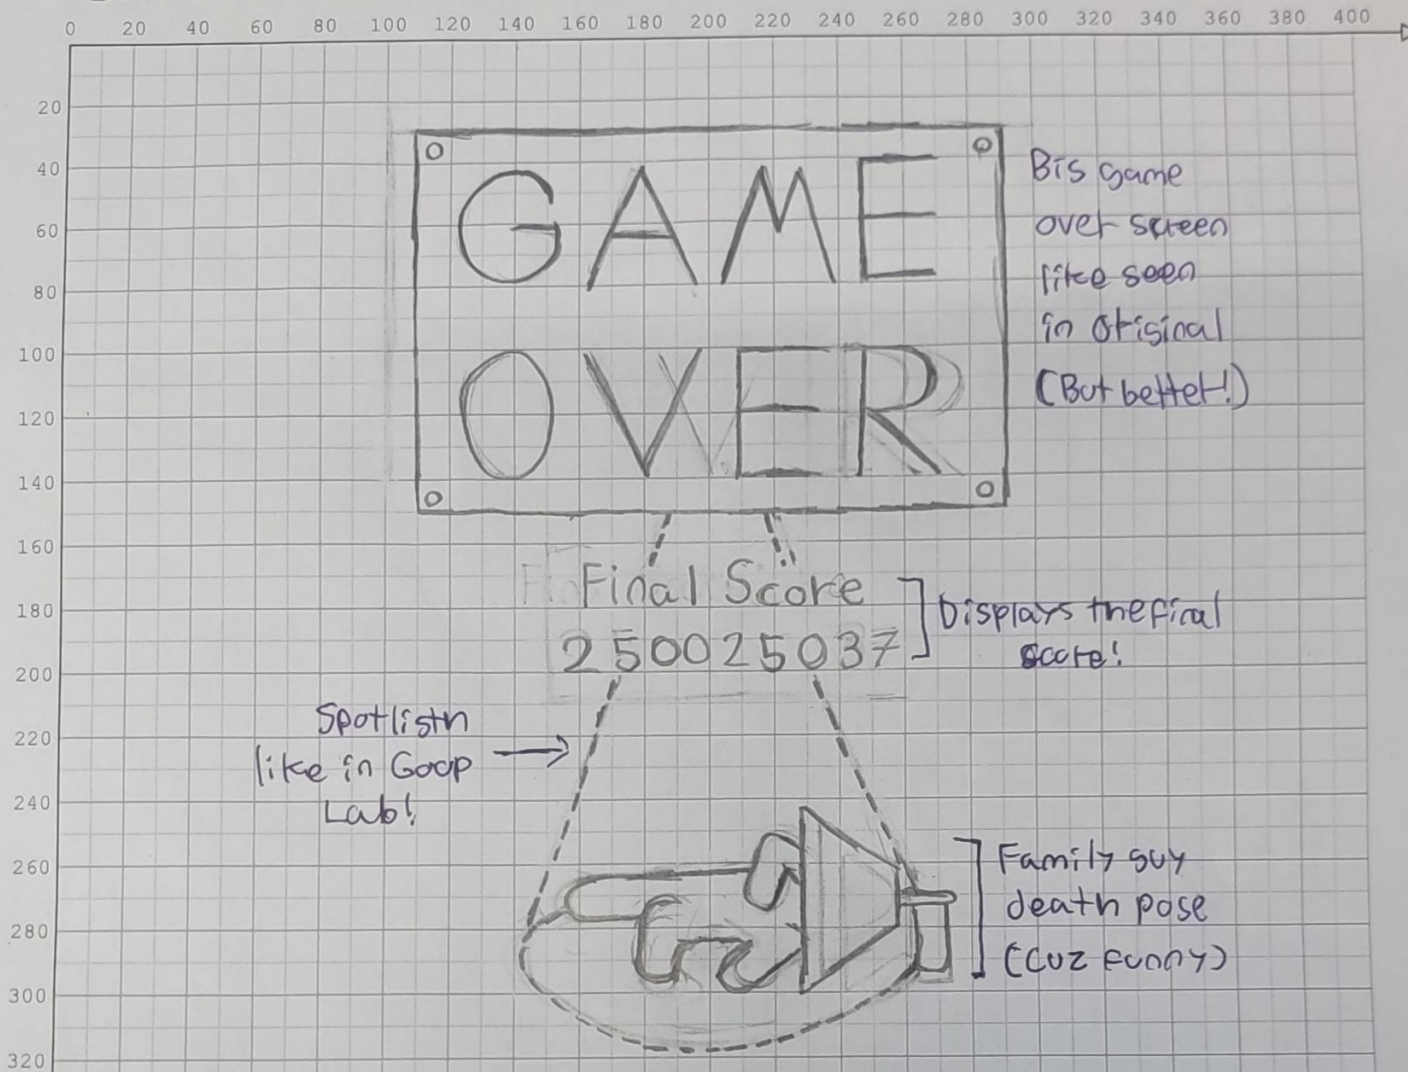 0 20 40 60 80 100 120 140 160 180 200 220 240 260 280 300 320 340 360 380 400
20
40
60
80
100
120
140
160
180
200
220
240
260
280
300
320
GAME
OVER
Big game
over screen
like seen
in original
(But better!)
Final Score
250025037
Displays the final
score!
Spotlight
like in Goop
Lab!
Family guy
death pose
(cuz funny)